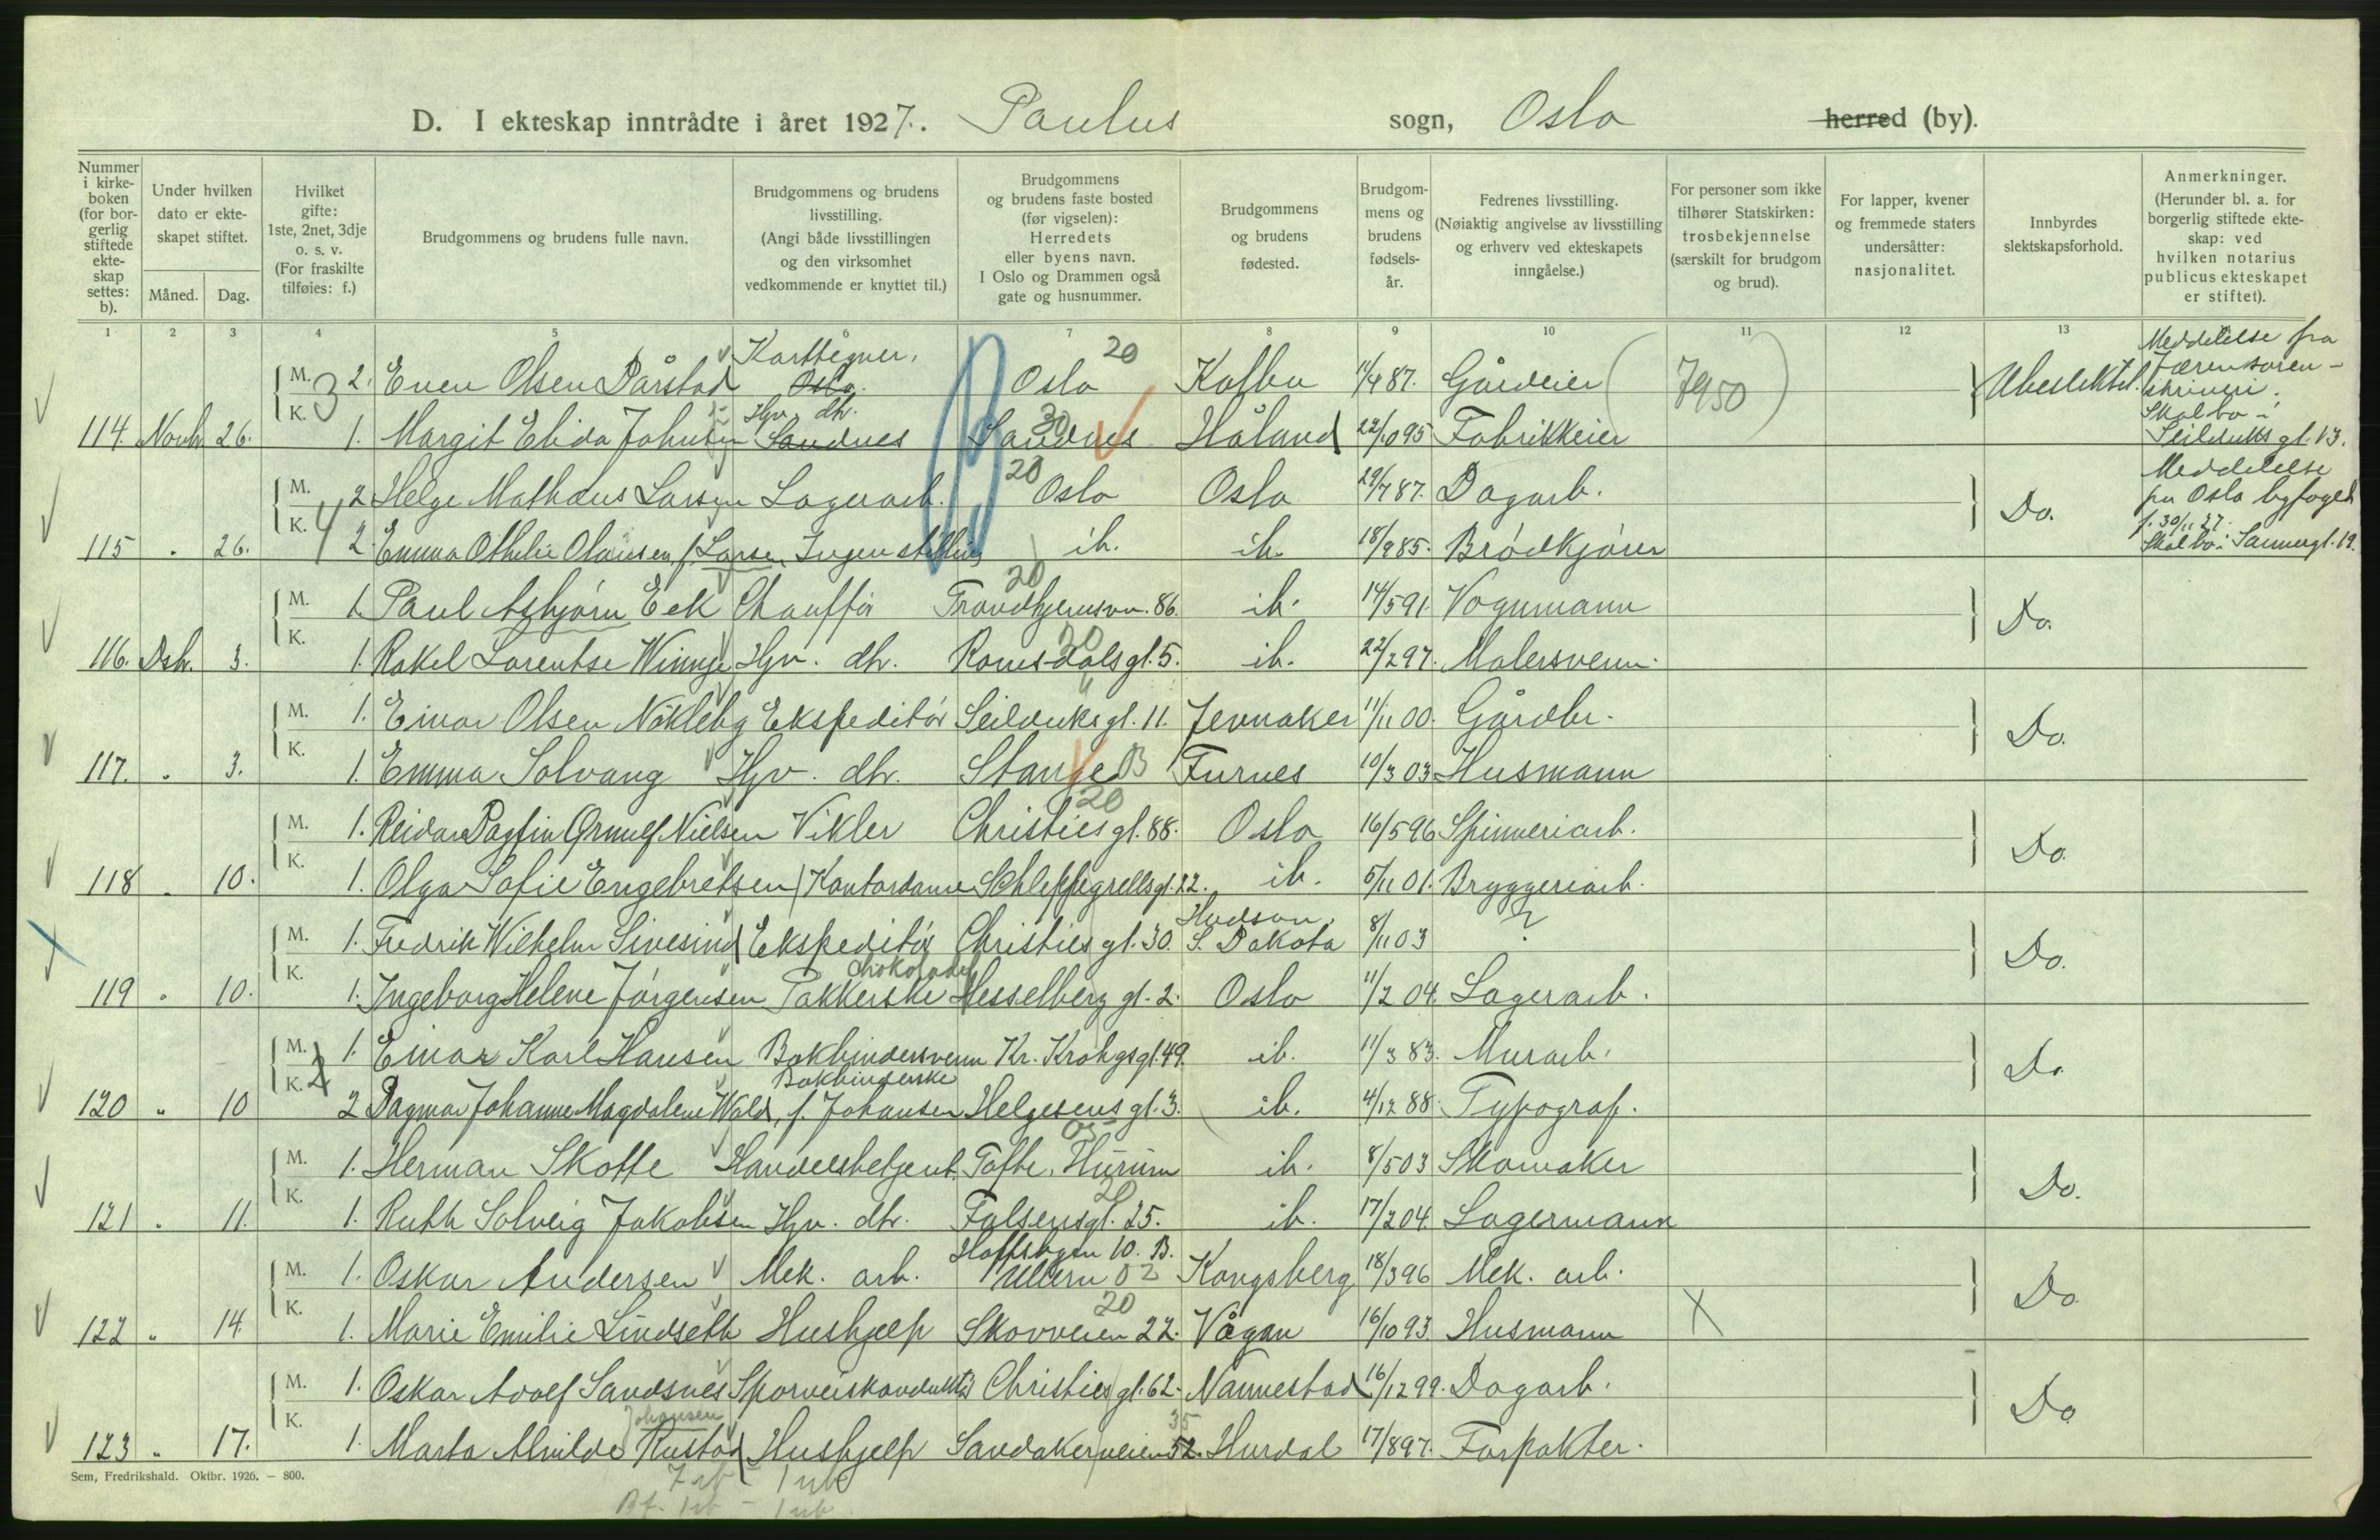 D. I ekteskap inntrådte i året 1927. Paulus sogn, Oslo herred (by).
Nummer i kirkeboken (for borgerlig stiftede ekteskap settes: b).
Under hvilken dato er ekteskapet stiftet.
Måned. Dag.
Hvilket gifte: 1ste, 2net, 3dje o. s. v. (For fraskilte tilføies: f.)
Brudgommens og brudens fulle navn.
Brudgommens og brudens livsstilling. (Angi både livsstillingen og den virksomhet vedkommende er knyttet til.)
Brudgommens og brudens faste bosted (før vigselen): Herredets eller byens navn. I Oslo og Drammen også gate og husnummer.
Brudgommens og brudens fødested.
Brudgommens og brudens fødselsår.
Fedrenes livsstilling. (Nøiaktig angivelse av livsstilling og erhverv ved ekteskapets inngåelse.)
For personer som ikke tilhører Statskirken: trosbekjennelse (særskilt for brudgom og brud).
For lapper, kvener og fremmede staters undersåtter: nasjonalitet.
Innbyrdes slektskapsforhold.
Anmerkninger. (Herunder bl. a. for borgerlig stiftede ekteskap: ved hvilken notarius publicus ekteskapet er stiftet).
1 2 3 4 5 6 7 8 9 10 11 12 13
M. 2. Even Olsen Pårstad Karttegner. Oslo. Oslo 20 Kolbu 11/4 87. Gårdeier (7950) Ubeslektet.
Meddelelse fra
Jærensoren-
skriveri.
Skal bo i
Seilduksgt. 13.
K. 3
114. Novb. 26. 1. Margit Elida Johnsen Hgv. dtr. Sandnes Sandnes 30 Håland 22/10 95 Fabrikkeier
M. 2 Helge Mathæus Larsen Lagerarb. 20 Oslo Oslo 29/7 87. Dagarb. Do.
Meddelelse
fra Oslo byfoged
f. 30/11 27.
Skal bo i Sannergt. 19.
K. 4
115 " 26. 2. Emma Othelie Olausen, f. Larsen Ingen stilling ib. ib. 18/9 85. Brødkjører
M. 1. Paul Asbjørn Eek Chauffør Trondhjemsvn. 86. 20 ib. 14/5 91. Vognmann Do.
K.
116. Dsb. 3. 1. Rakel Lorentse Winnje Hgv. dtr. Romsdalsgt. 5. 20 ib. 22/2 97. Malersvenn.
M. 1. Einar Olsen Nökleby Ekspeditör Seilduksgt. 11. Jevnaker 11/11 00. Gårdbr. Do.
K.
117. " 3. 1. Emma Solvang Hgv. dtr. Stange B Furnes 10/3 03 Husmann
M. 1. Reidar Dagfin Ørnulf Nielsen Vikler Christiesgt. 88. 20 Oslo 16/5 96 Spinneriarb. Do.
K.
118 " 10. 1. Olga Sofie Engebretsen Kontordame Schleppegrellsgt. 22. ib. 5/11 01. Bryggeriarb.
M. 1. Fredrik Wilhelm Sivesind Ekspeditör Christies gt. 30. Hudson, S. Dakota 8/11 03 ? Do.
K.
119 " 10. 1. Ingeborg Helene Jörgensen Pakkerske chokolade Hesselberg gt. 2. Oslo 11/2 04. Lagerarb.
M. 1. Einar Karl Hansen Bokbindersvenn Kr. Krohgsgt. 49. ib. 11/3 83. Murarb. Do.
K. 2
120 " 10 2 Dagmar Johanne Magdalene Wold, f. Johansen Bokbinderske Helgesens gt. 3. ib. 4/12 88. Typograf.
M. 1. Herman Skotte Handelsbetjent. Tofte, Hurum ib. 8/5 03 Skomaker Do.
K.
121 " 11. 1. Ruth Solveig Jakobsen Hgv. dtr. Falsensgt. 25. 20 ib. 17/2 04. Lagermann
M. 1. Oskar Andersen Mek. arb. Hoffsbyen 10. B. Ullern 02 Kongsberg 18/3 96 Mek. arb. Do.
K.
122 " 14. 1. Marie Emilie Lindseth Hushjelp Skovveien 22. 20 Vågan 16/10 93. Husmann X
M. 1. Oskar Adolf Sandsnes Sporveiskonduktör Christies gt. 62. Nannestad 16/12 99. Dagarb. Do.
K.
123 " 17. 1. Marta Alvilde Johansen Rustad Hushjelp Sandakerveien 52. 35 Hurdal 17/8 97. Forpakter.
Sem, Fredrikshald. Oktbr. 1926. – 800.